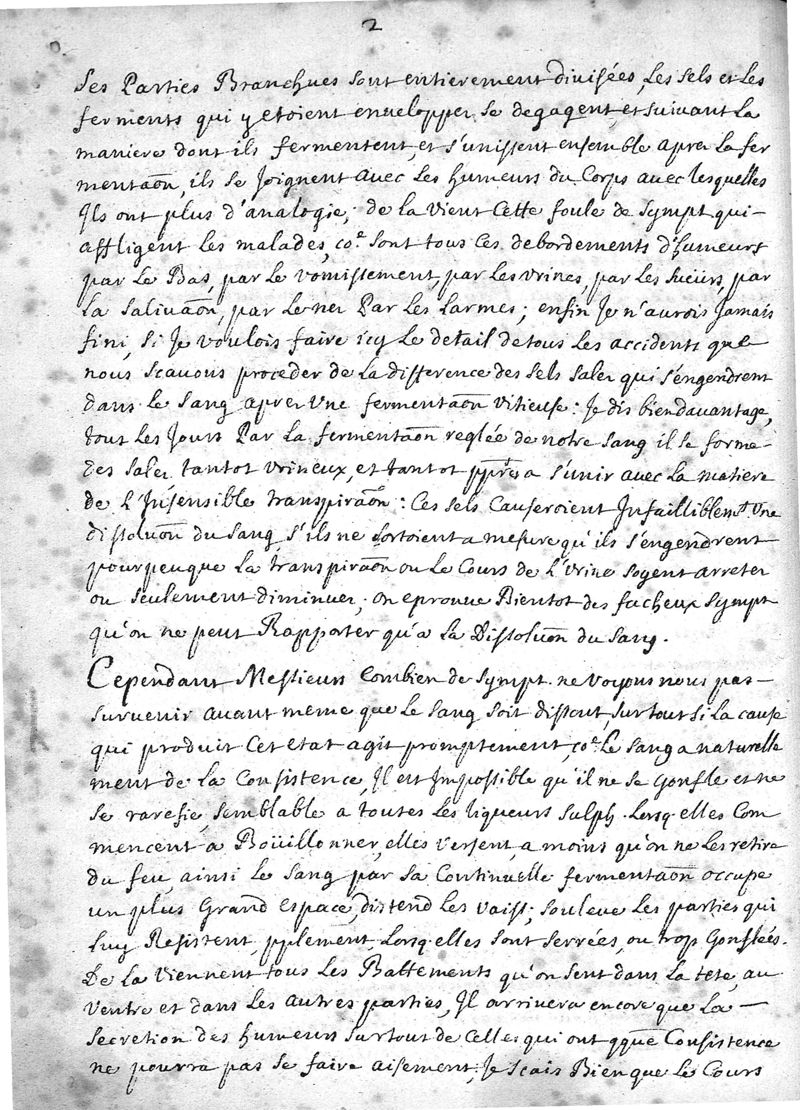 2
ses Parties Branchues sont entierement divisées, Les sels et Les
ferments qui y etoient enveloppez se degagent, et suivant La
maniere dont ils fermentent, et s'unissent ensemble apres La fer
mentaõn, ils se Joignent avec Les humeurs du Corps avec lesquelles
Ils ont plus d'analogie; de la vient Cette foule de Sympt qui -
affligent Les malades, coe. sont tous Ces debordements d'humeurs
par Le Bas, par Le vomissement, par Les Urines, par Les sueurs, par
La salivaõn, par Le nez Par Les Larmes; enfin Je n'aurois Jamais
fini, si Je voulois faire icy Le detail de tous Les accidents que
nous scavons proceder de La difference des sels salez qui s'engendrent
dans Le sang apres une fermentaõn vitieuse: Je dis bien davantage,
tout Les Jours Par La fermentaõn reglée de notre Sang il se forme -
des salez tantot Urineux, et tantot pprès a s'unir avec La matiere
de L'Insensible transpiraõn: Ces sels Causeroient Infailliblemt. Une
dissoluõn du Sang, s'ils ne sortoient a mesure qu'ils s'engendrent
pourpeuque La transpiraõn ou Le Cours de L'Urine soyent arretez
ou seulement diminuez; On eprouve Bientot des facheux Sympt
qu'on ne peut Rapporter qu'a La Dissoluõn du Sang.
Cependant Messieurs Combien de Sympt. ne Voyons nous pas -
survenir avant meme que Le Sang soit dissout surtout si La cause
qui produit Cet etat agit promptement, coe. Le Sang a naturelle
ment de La Consistence, Il est Impossible qu'il ne se gonfle et ne
se rarefie, semblable a toutes Les Liqueurs sulph. Lorsq. elles Com
mencent a Boüillonner, elles versent, a moins qu'on ne Les retire
du feu, ainsi Le Sang par sa Continuelle fermentaõn occupe
un plus Grand Espace, distend Les vaiss; souleve Les parties qui
Luy Resistent, pplement, Lorsq. elles sont serrées, ou trop Gonflées.
De La Viennent tous Les Battements qu'on sent dans La tete, au
Ventre et dans Les autres parties, Il arrivera encore que La -
secretion des humeurs surtout de Celles qui ont qque Consistence
ne pourra pas se faire aisement, Je scais Bien que Le Cours